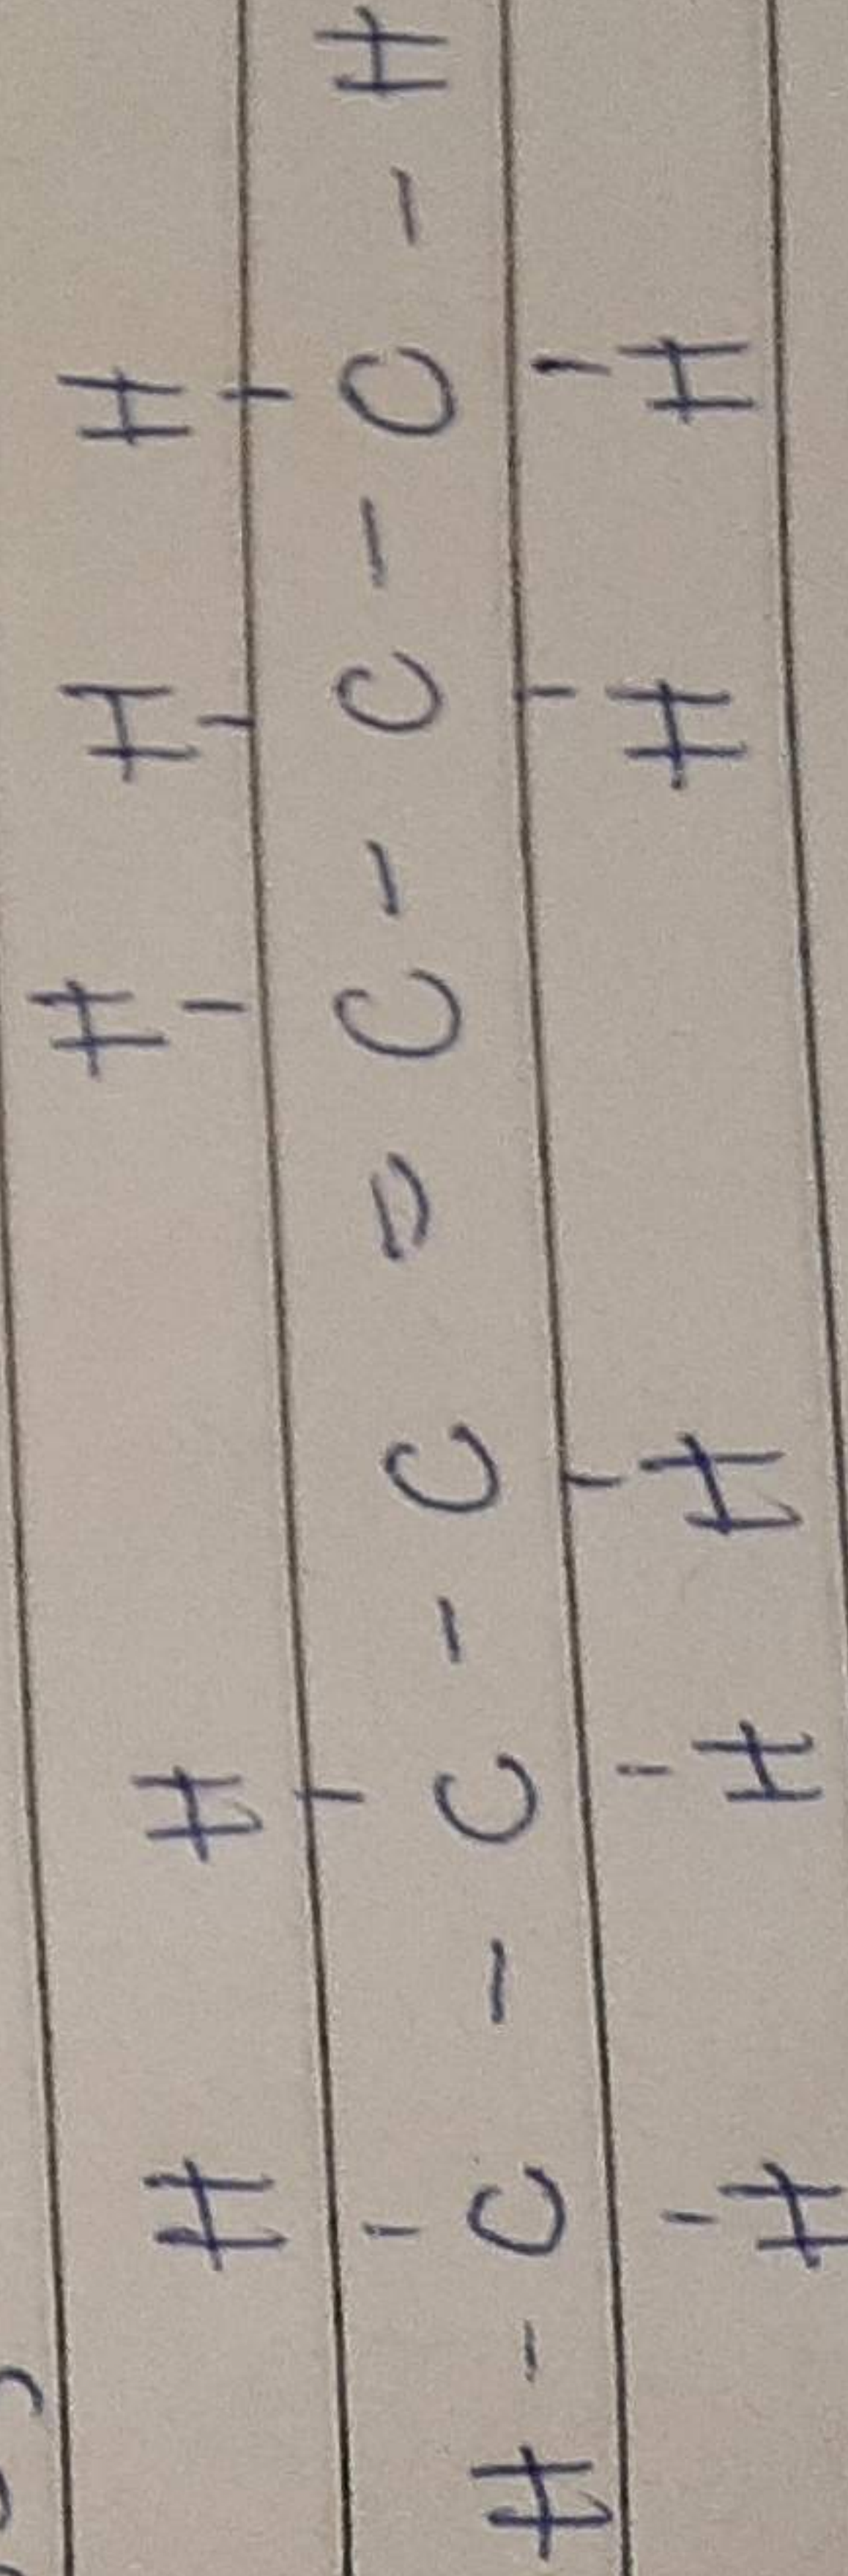 H H H H H
| | | | |
H - C - C - C = C - C - C - H
| | | | |
H H H H H